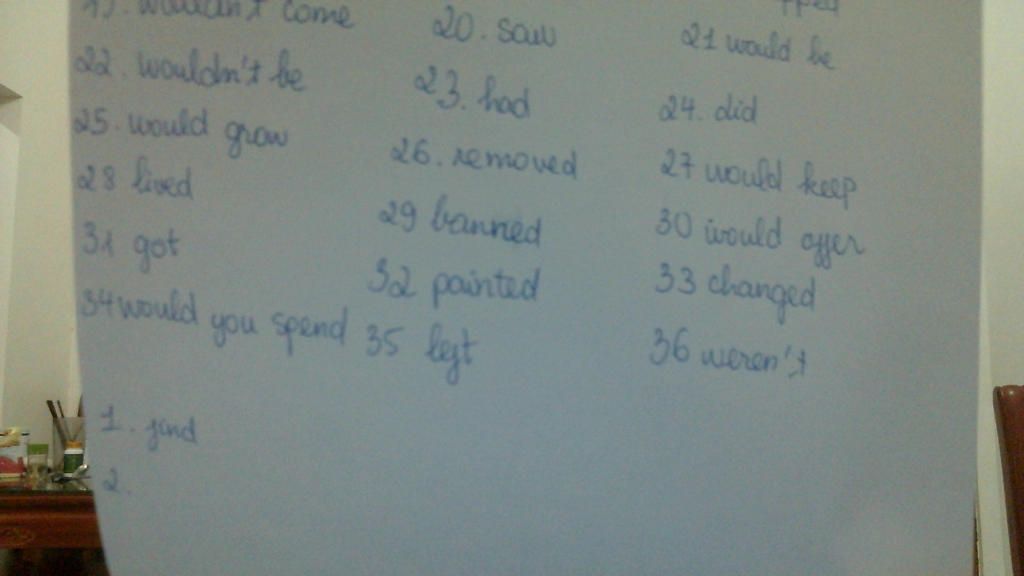 19. wouldn't come 20. saw 21 would be
22. wouldn't be 23. had 24. did
25. would grow 26. removed 27 would keep
28 lived 29 banned 30 would offer
31 got 32 painted 33 changed
34 would you spend 35 left 36 weren't
1. find
2.